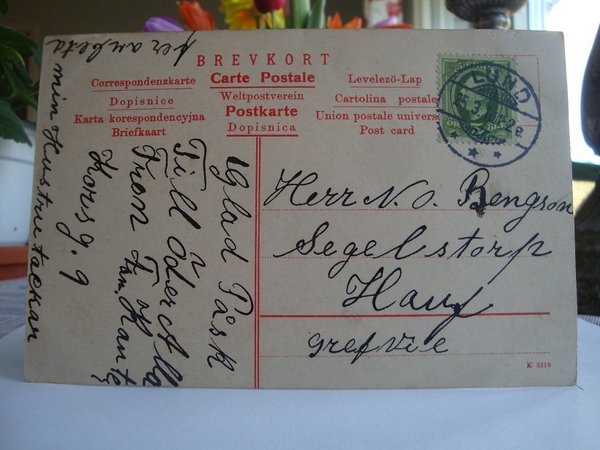 BREVKORT
Correspondenzkarte
Carte Postale
Levelezö-Lap
Dopisnice
Weltpostverein
Cartolina postale
Karta korespondencyjna
Postkarte
Union postale univers
Briefkaart
Dopisnica
Post card
LUND
Herr N. O. Bengson
Segelstorp
Hauf
grefvie
K 3319
Glad Påsk
Till Öder Alla
Från Fam. Hante
Korsg. 9
min Hustru tackar